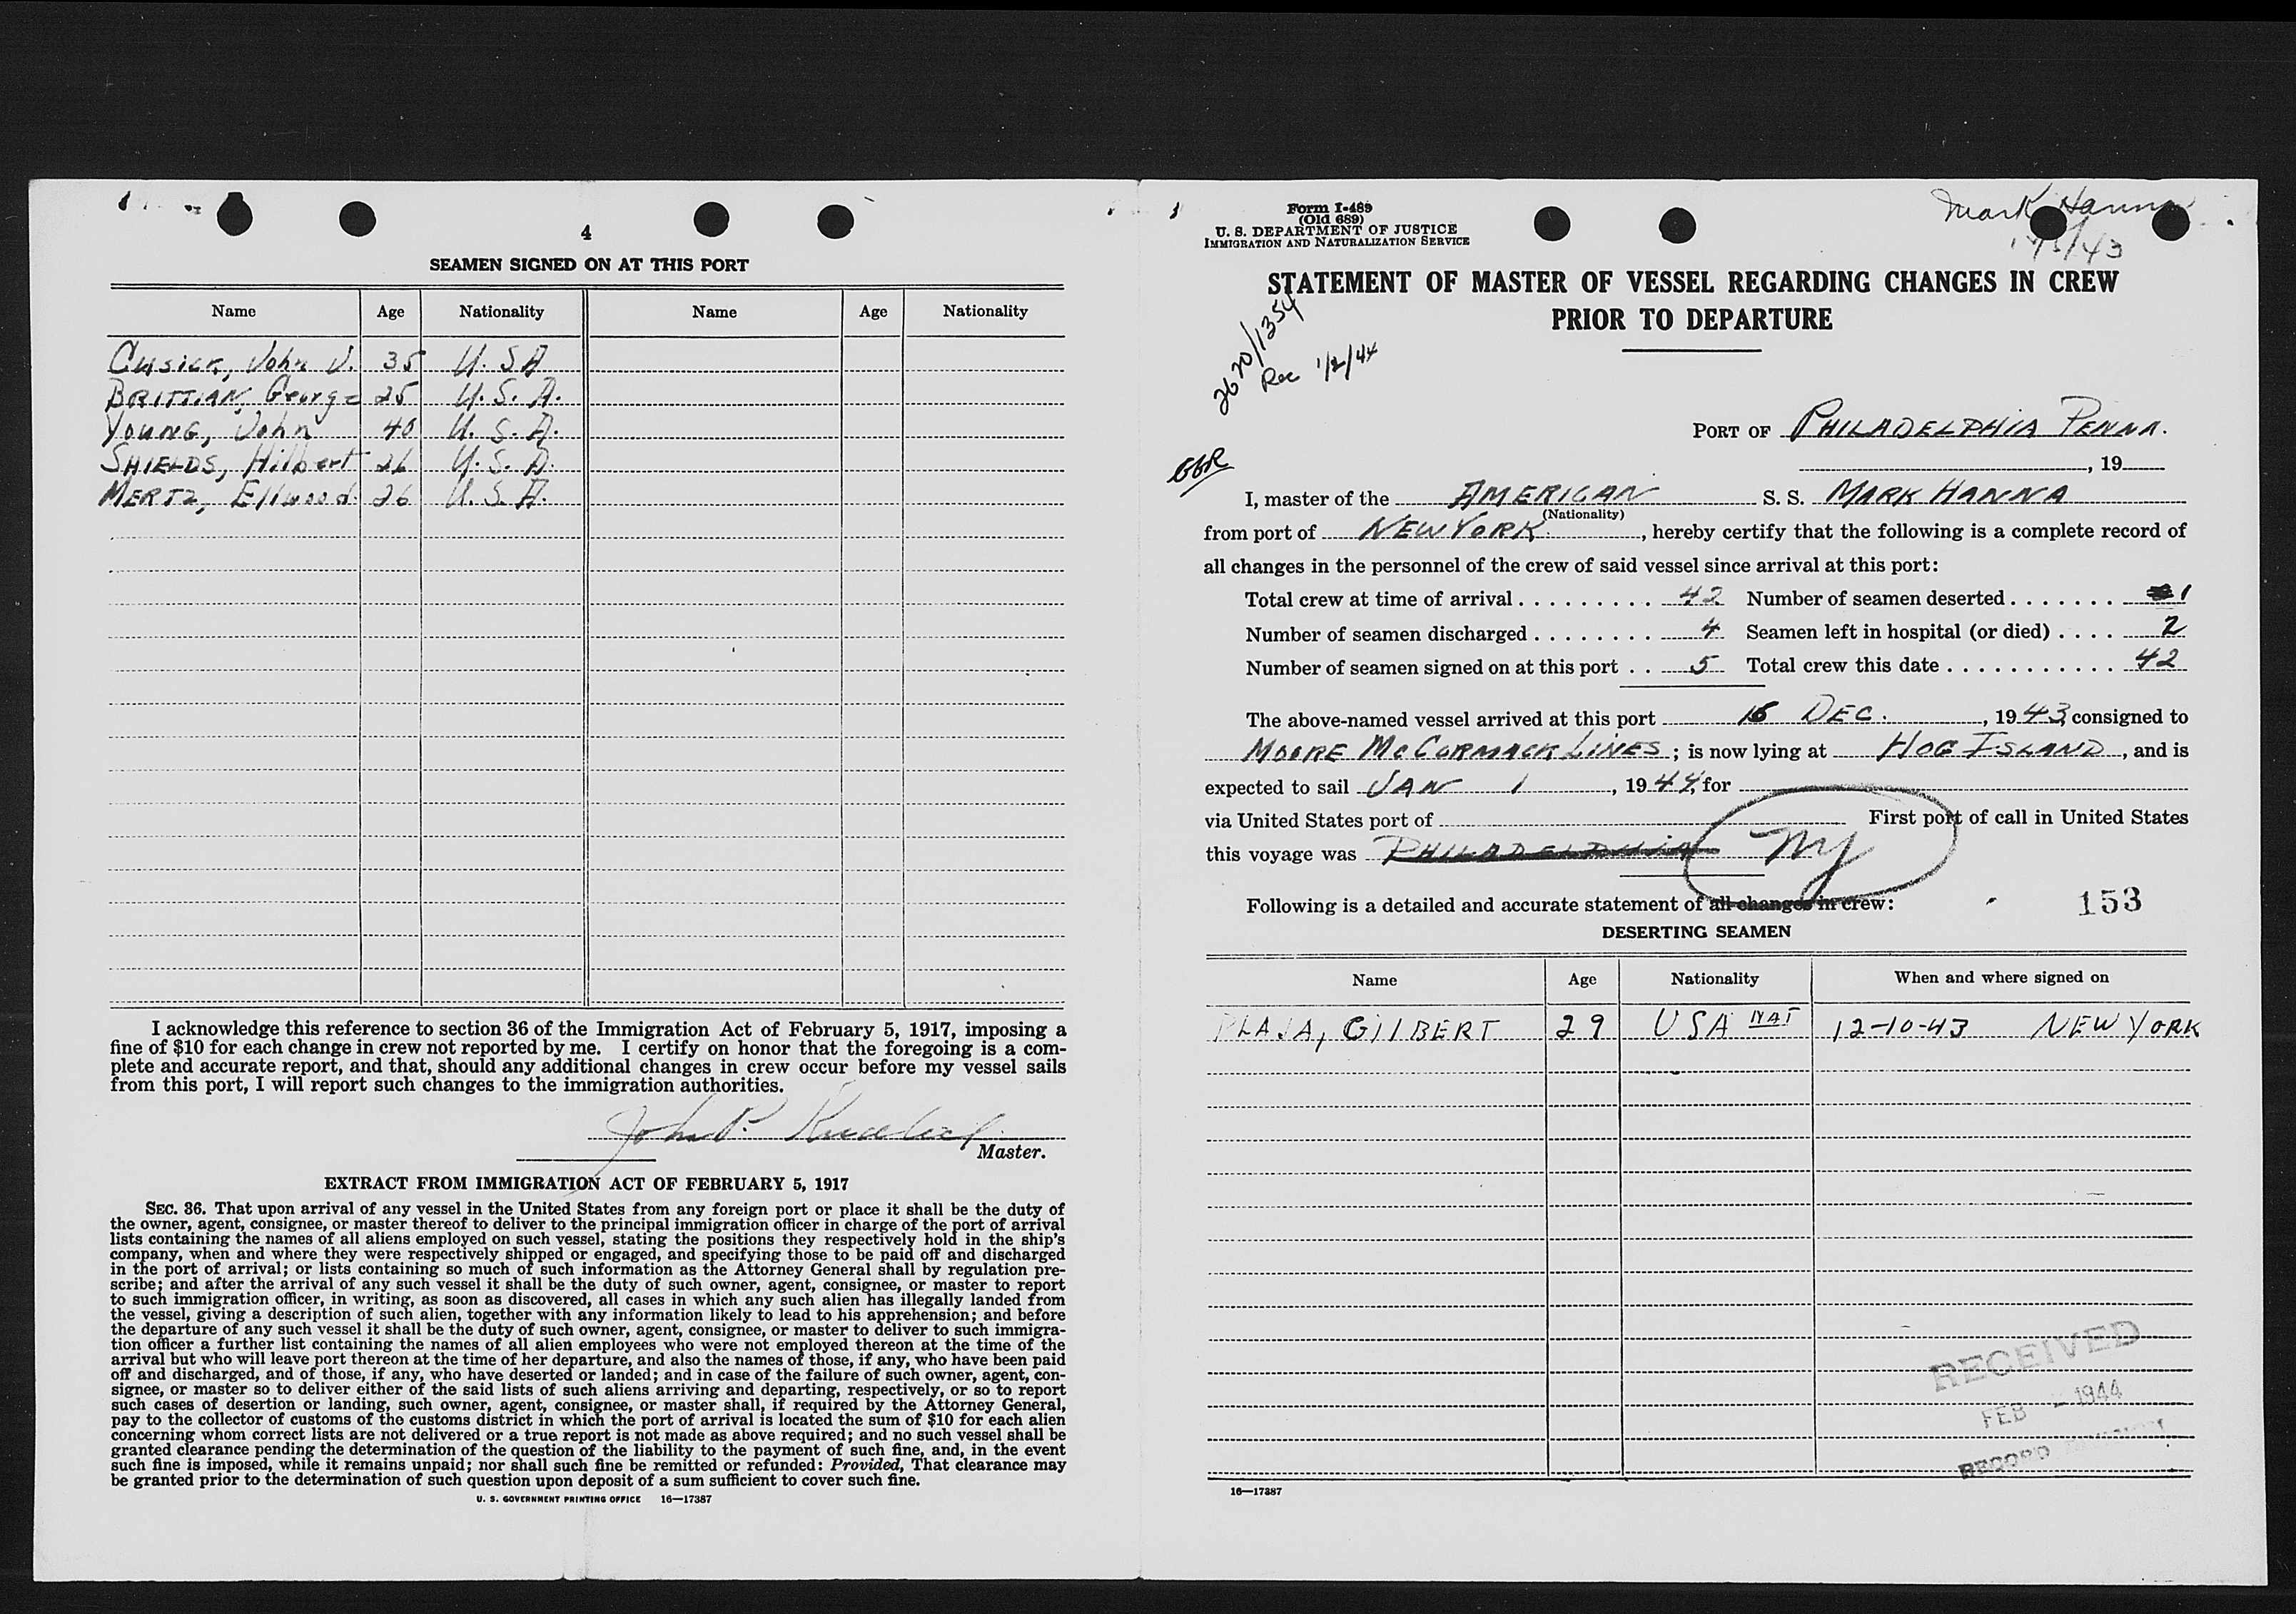 4
SEAMEN SIGNED ON AT THIS PORT
Name Age Nationality Name Age Nationality
CUSICK, John J. 35 U. S A
BRITTIAN, George 25 U. S. A.
YOUNG, John 40 U. S. A.
SHIELDS, Hilbert 26 U. S. A.
MERTZ, Ellwood. 26 U. S. A.
I acknowledge this reference to section 36 of the Immigration Act of February 5, 1917, imposing a
fine of $10 for each change in crew not reported by me. I certify on honor that the foregoing is a com-
plete and accurate report, and that, should any additional changes in crew occur before my vessel sails
from this port, I will report such changes to the immigration authorities.
John P.
Master.
EXTRACT FROM IMMIGRATION ACT OF FEBRUARY 5, 1917
SEC. 36. That upon arrival of any vessel in the United States from any foreign port or place it shall be the duty of
the owner, agent, consignee, or master thereof to deliver to the principal immigration officer in charge of the port of arrival
lists containing the names of all aliens employed on such vessel, stating the positions they respectively hold in the ship's
company, when and where they were respectively shipped or engaged, and specifying those to be paid off and discharged
in the port of arrival; or lists containing so much of such information as the Attorney General shall by regulation pre-
scribe; and after the arrival of any such vessel it shall be the duty of such owner, agent, consignee, or master to report
to such immigration officer, in writing, as soon as discovered, all cases in which any such alien has illegally landed from
the vessel, giving a description of such alien, together with any information likely to lead to his apprehension; and before
the departure of any such vessel it shall be the duty of such owner, agent, consignee, or master to deliver to such immigra-
tion officer a further list containing the names of all alien employees who were not employed thereon at the time of the
arrival but who will leave port thereon at the time of her departure, and also the names of those, if any, who have been paid
off and discharged, and of those, if any, who have deserted or landed; and in case of the failure of such owner, agent, con-
signee, or master so to deliver either of the said lists of such aliens arriving and departing, respectively, or so to report
such cases of desertion or landing, such owner, agent, consignee, or master shall, if required by the Attorney General,
pay to the collector of customs of the customs district in which the port of arrival is located the sum of $10 for each alien
concerning whom correct lists are not delivered or a true report is not made as above required; and no such vessel shall be
granted clearance pending the determination of the question of the liability to the payment of such fine, and, in the event
such fine is imposed, while it remains unpaid; nor shall such fine be remitted or refunded: Provided, That clearance may
be granted prior to the determination of such question upon deposit of a sum sufficient to cover such fine.
U. S. GOVERNMENT PRINTING OFFICE 16—17387
Form I-489
(Old 689)
U. S. DEPARTMENT OF JUSTICE
IMMIGRATION AND NATURALIZATION SERVICE
Mark Hanna
STATEMENT OF MASTER OF VESSEL REGARDING CHANGES IN CREW
PRIOR TO DEPARTURE
2620/1354
Rec 1/2/44
PORT OF PHILADELPHIA PENNA.
, 19
GGR
I, master of the AMERICAN S. S. MARK HANNA
(Nationality)
from port of NEW YORK, hereby certify that the following is a complete record of
all changes in the personnel of the crew of said vessel since arrival at this port:
Total crew at time of arrival 42 Number of seamen deserted 1
Number of seamen discharged 4 Seamen left in hospital (or died) 2
Number of seamen signed on at this port 5 Total crew this date 42
The above-named vessel arrived at this port 16 DEC., 1943, consigned to
MOORE McCORMACK LINES; is now lying at HOG ISLAND, and is
expected to sail JAN 1, 1944, for
via United States port of First port of call in United States
this voyage was PHILADELPHIA NY
Following is a detailed and accurate statement of all changes in crew:
153
DESERTING SEAMEN
Name Age Nationality When and where signed on
PLAJA, GILBERT 29 USA NAT 12-10-43 NEW YORK
RECEIVED
FEB 1944
RECORD
16—17387